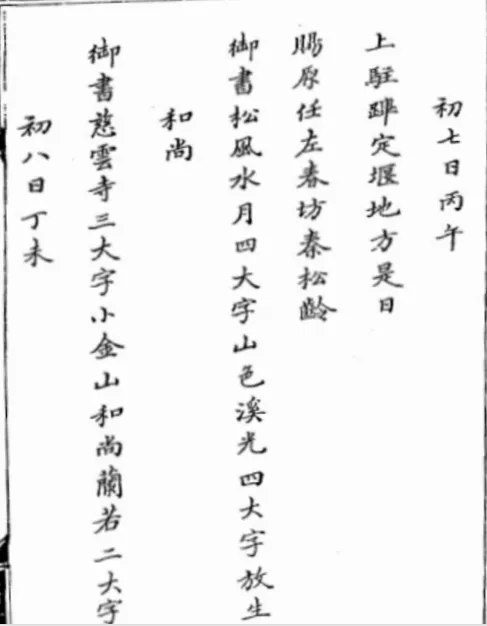 初七日丙午
上駐蹕定堰地方是日
賜原任左春坊秦松齡
御書松風水月四大字山色溪光四大字放生
和尚
御書慈雲寺三大字小金山和尚蘭若二大字
初八日丁未